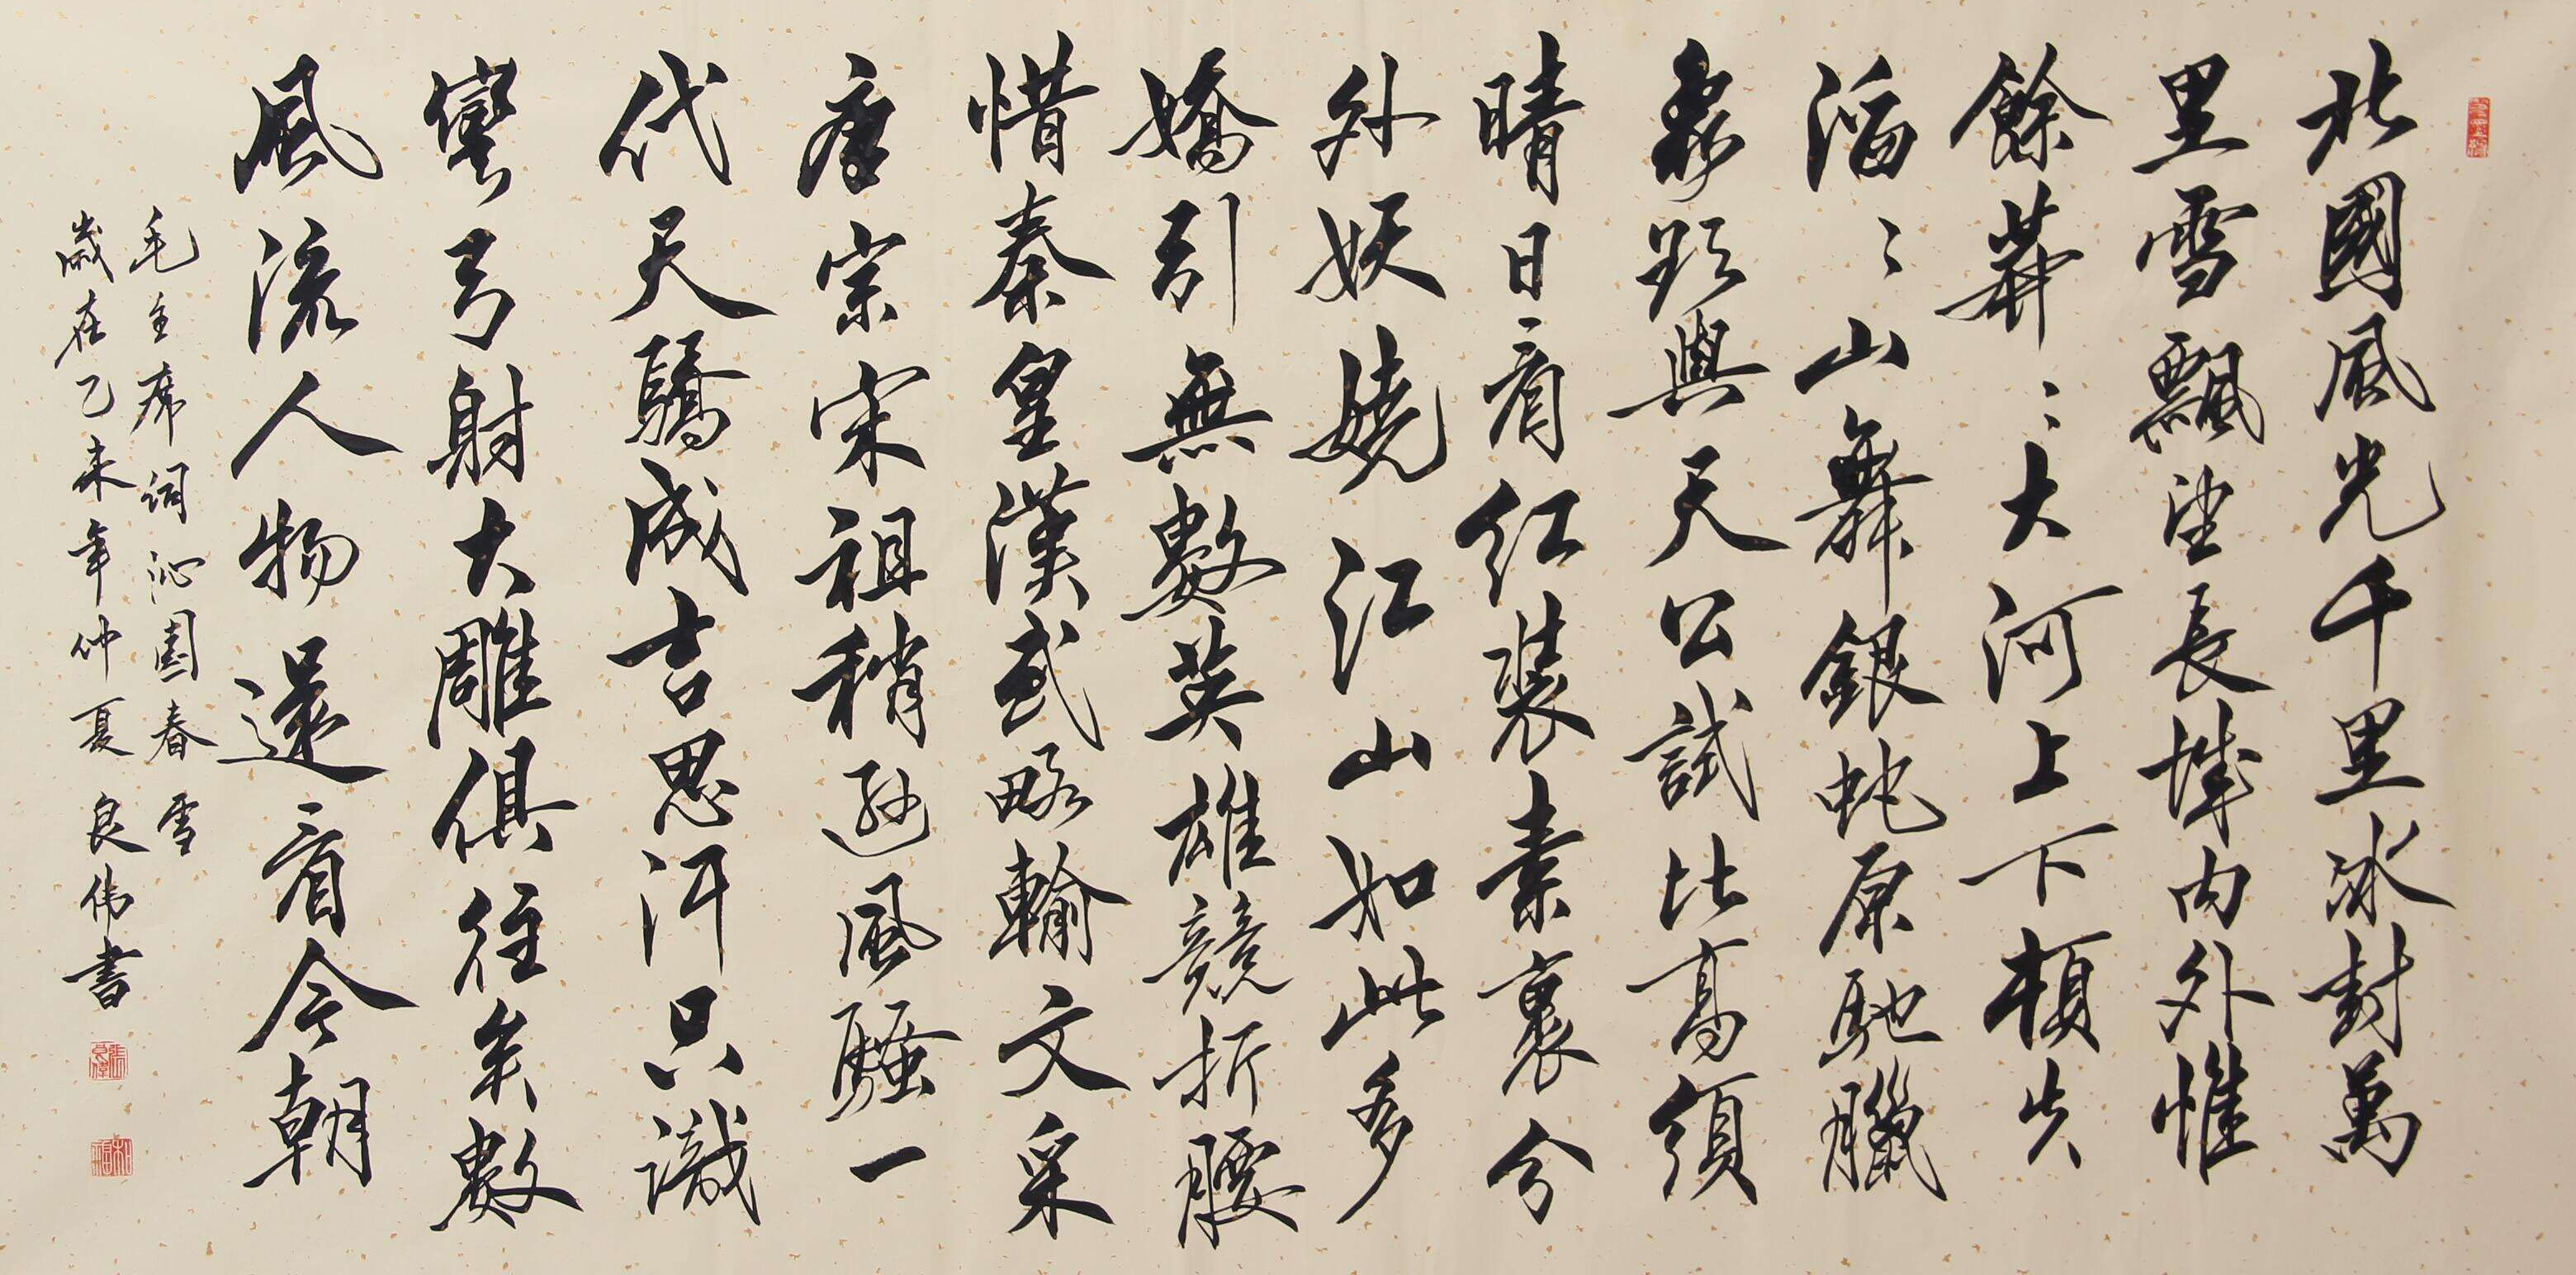 北國風光千里冰封萬
里雪飄望長城内外惟
餘莽〻大河上下頓失
滔〻山舞銀蛇原馳臘
象欲與天公試比高須
晴日看紅裝素裹分
外妖嬈江山如此多
嬌引無數英雄競折腰
惜秦皇漢武略輸文采
唐宗宋祖稍遜風騷一
代天驕成吉思汗只識
彎弓射大雕俱往矣數
風流人物還看今朝
毛主席詞沁園春 雪
歲在乙未年仲夏 良伟書